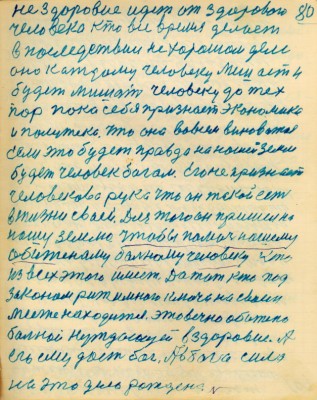 80
не здоровие идет от здорового
человека кто все время делает
в последствии не хорошом дели
оно каждому человеку меш
будет мишат человеку до тех
пор пока себя признает экономика
и политека, что она вовсем виноватоя
если это будет правда на ношей земли
будет человек богам. Его не признает
человекова рука что он такой есть
в жизни своей. Для того он пришел на
нашу землю чтобы помоч нашему
обиженому больному человеку. Кто
из всех этого имеет. Да тот кто под
законом
месте находится. это вечно обижено
больной нуждающей в здоровие. А
его ему дост бог. А в бога сила
на это дело рождена